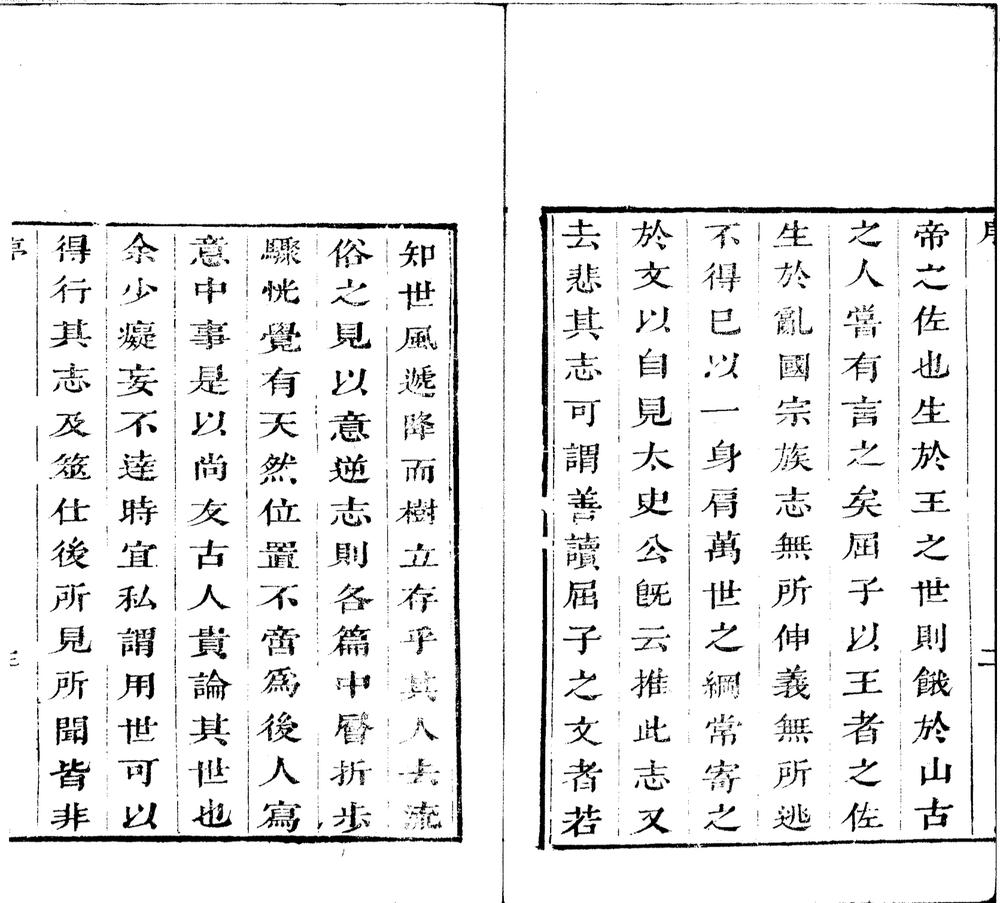 帝之佐也生於王之世則餓於山古
之人嘗有言之矣屈子以王者之佐
生於亂國宗族志無所伸義無所逃
不得已以一身肩萬世之綱常寄之
於文以自見太史公旣云推此志又
去悲其志可謂善讀屈子之文者若
知世風遞降而樹立存乎其人去流
俗之見以意逆志則各篇中層折步
驟恍覺有天然位置不啻爲後人寫
意中事是以尚友古人貴論其世也
余少癡妄不達時宜私謂用世可以
得行其志及筮仕後所見所聞皆非